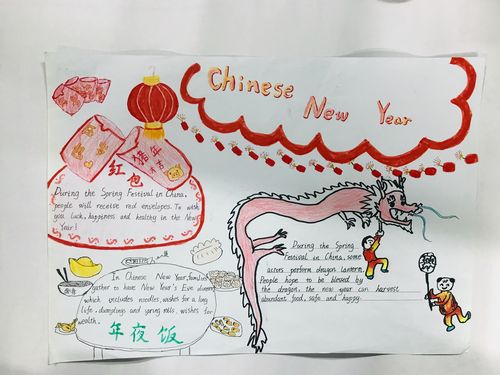 Chinese
New Year
红包
During the Spring Festival in China,
people will receive red envelopes. To wish
you luck, happiness and healthy in the New
Year!
During the Spring
Festival in China, some
actors perform dragon lantern.
People hope to be blessed by
the dragon, the new year can harvest
abundant food, safe and happy.
In Chinese New Year, family
gather to have New Year's Eve dinner
which includes noodles, wishes for a long
life, dumplings and spring rolls, wishes for
wealth.
年夜饭